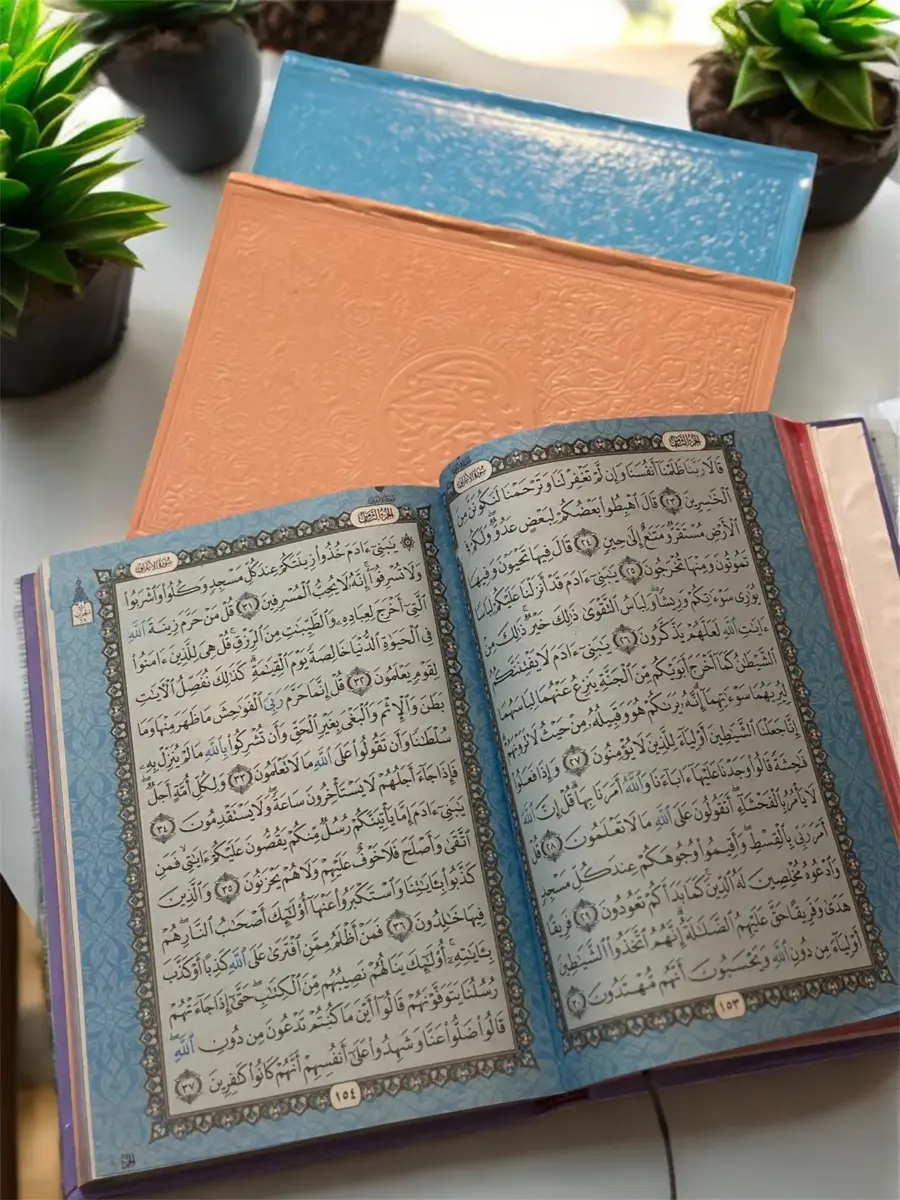 سُورَةُ الأَعْرَافِ
الجُزْءُ الثَّامِنُ
قَالَا رَبَّنَا ظَلَمْنَآ أَنفُسَنَا وَإِن لَّمْ تَغْفِرْ لَنَا وَتَرْحَمْنَا لَنَكُونَنَّ مِنَ
ٱلْخَٰسِرِينَ ٢٣ قَالَ ٱهْبِطُوا۟ بَعْضُكُمْ لِبَعْضٍ عَدُوٌّ وَلَكُمْ فِى
ٱلْأَرْضِ مُسْتَقَرٌّ وَمَتَٰعٌ إِلَىٰ حِينٍ ٢٤ قَالَ فِيهَا تَحْيَوْنَ وَفِيهَا
تَمُوتُونَ وَمِنْهَا تُخْرَجُونَ ٢٥ يَٰبَنِىٓ ءَادَمَ قَدْ أَنزَلْنَا عَلَيْكُمْ لِبَاسًا
يُوَٰرِى سَوْءَٰتِكُمْ وَرِيشًا وَلِبَاسُ ٱلتَّقْوَىٰ ذَٰلِكَ خَيْرٌ ذَٰلِكَ مِنْ
ءَايَٰتِ ٱللَّهِ لَعَلَّهُمْ يَذَّكَّرُونَ ٢٦ يَٰبَنِىٓ ءَادَمَ لَا يَفْتِنَنَّكُمُ
ٱلشَّيْطَٰنُ كَمَآ أَخْرَجَ أَبَوَيْكُم مِّنَ ٱلْجَنَّةِ يَنزِعُ عَنْهُمَا لِبَاسَهُمَا
لِيُرِيَهُمَا سَوْءَٰتِهِمَآ إِنَّهُۥ يَرَىٰكُمْ هُوَ وَقَبِيلُهُۥ مِنْ حَيْثُ لَا تَرَوْنَهُمْ
إِنَّا جَعَلْنَا ٱلشَّيَٰطِينَ أَوْلِيَآءَ لِلَّذِينَ لَا يُؤْمِنُونَ ٢٧ وَإِذَا فَعَلُوا۟
فَٰحِشَةً قَالُوا۟ وَجَدْنَا عَلَيْهَآ ءَابَآءَنَا وَٱللَّهُ أَمَرَنَا بِهَا قُلْ إِنَّ ٱللَّهَ
لَا يَأْمُرُ بِٱلْفَحْشَآءِ أَتَقُولُونَ عَلَى ٱللَّهِ مَا لَا تَعْلَمُونَ ٢٨ قُلْ
أَمَرَ رَبِّى بِٱلْقِسْطِ وَأَقِيمُوا۟ وُجُوهَكُمْ عِندَ كُلِّ مَسْجِدٍ
وَٱدْعُوهُ مُخْلِصِينَ لَهُ ٱلدِّينَ كَمَا بَدَأَكُمْ تَعُودُونَ ٢٩ فَرِيقًا
هَدَىٰ وَفَرِيقًا حَقَّ عَلَيْهِمُ ٱلضَّلَٰلَةُ إِنَّهُمُ ٱتَّخَذُوا۟ ٱلشَّيَٰطِينَ
أَوْلِيَآءَ مِن دُونِ ٱللَّهِ وَيَحْسَبُونَ أَنَّهُم مُّهْتَدُونَ ٣٠
١٥٣
الجُزْءُ الثَّامِنُ
سُورَةُ الأَعْرَافِ
۞ يَٰبَنِىٓ ءَادَمَ خُذُوا۟ زِينَتَكُمْ عِندَ كُلِّ مَسْجِدٍ وَكُلُوا۟ وَٱشْرَبُوا۟
وَلَا تُسْرِفُوٓا۟ إِنَّهُۥ لَا يُحِبُّ ٱلْمُسْرِفِينَ ٣١ قُلْ مَنْ حَرَّمَ زِينَةَ ٱللَّهِ
ٱلَّتِىٓ أَخْرَجَ لِعِبَادِهِۦ وَٱلطَّيِّبَٰتِ مِنَ ٱلرِّزْقِ قُلْ هِىَ لِلَّذِينَ ءَامَنُوا۟
فِى ٱلْحَيَوٰةِ ٱلدُّنْيَا خَالِصَةً يَوْمَ ٱلْقِيَٰمَةِ كَذَٰلِكَ نُفَصِّلُ ٱلْءَايَٰتِ
لِقَوْمٍ يَعْلَمُونَ ٣٢ قُلْ إِنَّمَا حَرَّمَ رَبِّىَ ٱلْفَوَٰحِشَ مَا ظَهَرَ مِنْهَا وَمَا
بَطَنَ وَٱلْإِثْمَ وَٱلْبَغْىَ بِغَيْرِ ٱلْحَقِّ وَأَن تُشْرِكُوا۟ بِٱللَّهِ مَا لَمْ يُنَزِّلْ بِهِۦ
سُلْطَٰنًا وَأَن تَقُولُوا۟ عَلَى ٱللَّهِ مَا لَا تَعْلَمُونَ ٣٣ وَلِكُلِّ أُمَّةٍ أَجَلٌ
فَإِذَا جَآءَ أَجَلُهُمْ لَا يَسْتَأْخِرُونَ سَاعَةً وَلَا يَسْتَقْدِمُونَ ٣٤
يَٰبَنِىٓ ءَادَمَ إِمَّا يَأْتِيَنَّكُمْ رُسُلٌ مِّنكُمْ يَقُصُّونَ عَلَيْكُمْ ءَايَٰتِى فَمَنِ
ٱتَّقَىٰ وَأَصْلَحَ فَلَا خَوْفٌ عَلَيْهِمْ وَلَا هُمْ يَحْزَنُونَ ٣٥ وَٱلَّذِينَ
كَذَّبُوا۟ بِـَٔايَٰتِنَا وَٱسْتَكْبَرُوا۟ عَنْهَآ أُو۟لَٰٓئِكَ أَصْحَٰبُ ٱلنَّارِ هُمْ
فِيهَا خَٰلِدُونَ ٣٦ فَمَنْ أَظْلَمُ مِمَّنِ ٱفْتَرَىٰ عَلَى ٱللَّهِ كَذِبًا أَوْ كَذَّبَ
بِـَٔايَٰتِهِۦٓ أُو۟لَٰٓئِكَ يَنَالُهُمْ نَصِيبُهُم مِّنَ ٱلْكِتَٰبِ حَتَّىٰٓ إِذَا جَآءَتْهُمْ
رُسُلُنَا يَتَوَفَّوْنَهُمْ قَالُوٓا۟ أَيْنَ مَا كُنتُمْ تَدْعُونَ مِن دُونِ ٱللَّهِ
قَالُوا۟ ضَلُّوا۟ عَنَّا وَشَهِدُوا۟ عَلَىٰٓ أَنفُسِهِمْ أَنَّهُمْ كَانُوا۟ كَٰفِرِينَ ٣٧
١٥٤